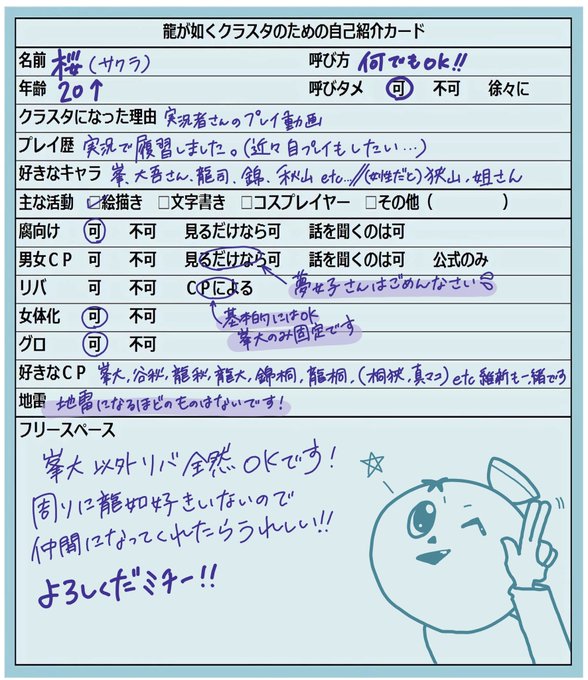 龍が如くクラスタのための自己紹介カード
名前 桜(サクラ) 呼び方 何でもOK!!
年齢 20↑ 呼びタメ 可 不可 徐々に
クラスタになった理由 実況者さんのプレイ動画
プレイ歴 実況で履習しました。(近々自プレイもしたい…)
好きなキャラ 峯、大吾さん、龍司、錦、秋山 etc…//(女性だと)狭山、姐さん
主な活動 ☑絵描き □文字書き □コスプレイヤー □その他( )
腐向け 可 不可 見るだけなら可 話を聞くのは可
男女CP 可 不可 見るだけなら可 話を聞くのは可 公式のみ
リバ 可 不可 CPによる
夢女子さんはごめんなさい
女体化 可 不可
基本的にはOK
峯大のみ固定です
グロ 可 不可
好きなCP 峯大,谷秋,龍秋,龍大,錦桐,龍桐,(桐狭,真マコ)etc 維新も一緒です
地雷 地雷になるほどのものはないです!
フリースペース
峯大以外リバ全然OKです!
周りに龍如好きいないので
仲間になってくれたらうれしい!!
よろしくだミチー!!